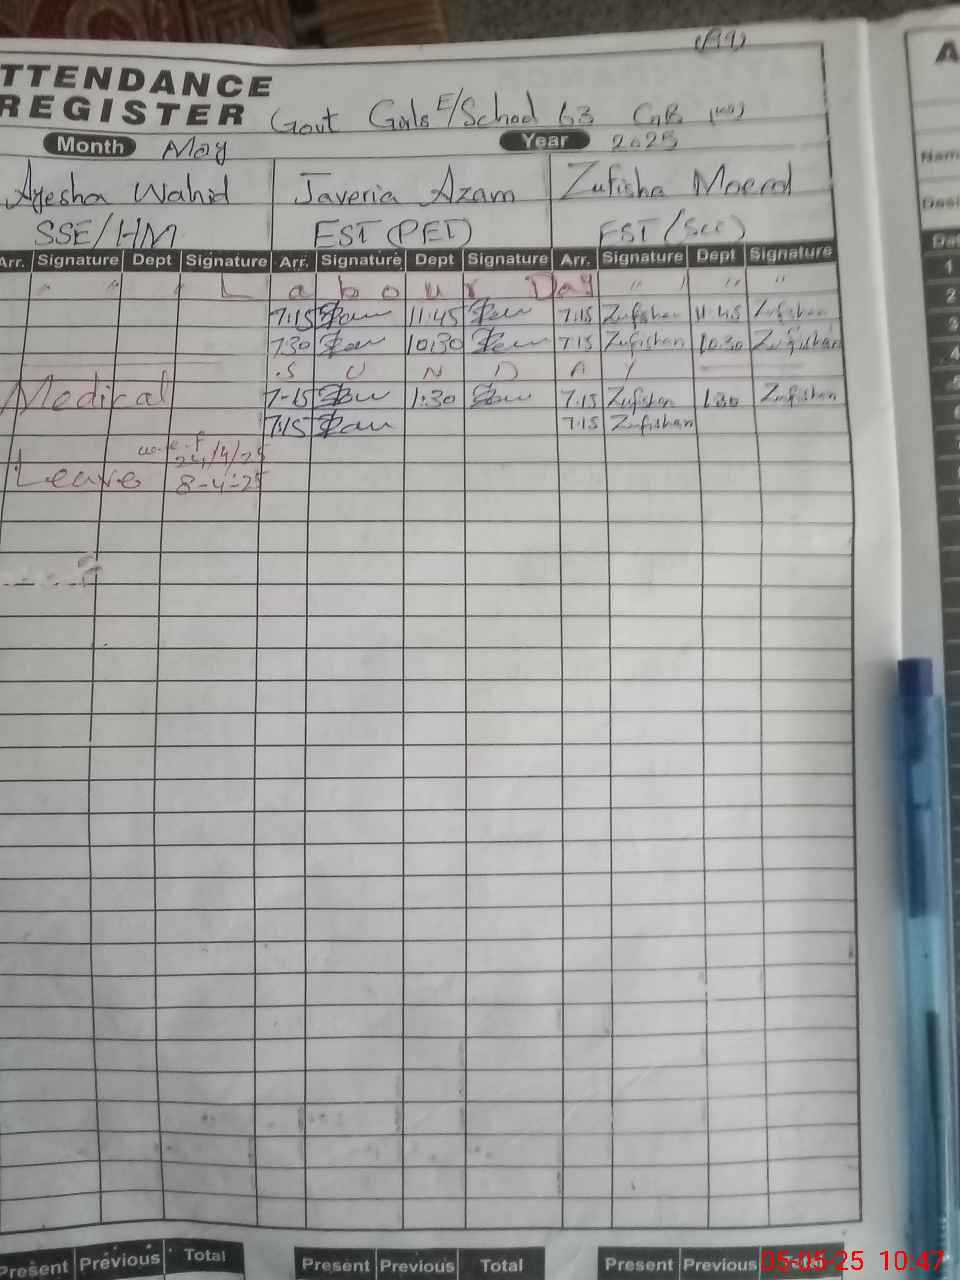 (P9)
ATTENDANCE
REGISTER Govt Girls E/School 63 GB
Month May Year 2025
Ayesha Wahid Javeria Azam Zufisha
SSE/HM EST (PET) EST (Sci)
Arr. Signature Dept Signature Arr. Signature Dept Signature Arr. Signature Dept Signature
" " " Labour Day " " " "
7:15 11:45 7:15 Zufishan 11:45 Zufishan
7:30 10:30 7:15 Zufishan 10:30 Zufishan
S U N D A Y
Medical 7-15 1:30 7:15 Zufishan 1:30 Zufishan
7:15 7:15 Zufishan
w.e.f 24/4/25
Leave 8-4-25
Present Previous Total Present Previous Total Present Previous
A
Nam
Desi
Dat
1
2
3
4
5
6
05-05-25 10:47